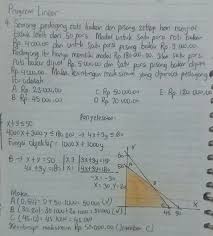 Program Linear
4. Seorang pedagang roti bakar dan pisang setiap hari menjual
tidak lebih dari 50 porsi. Modal untuk satu porsi roti bakar
Rp 4.000.00 dan untuk satu porsi pisang bakar Rp 3.000.00.
Pedagang itu hanya memiliki modal Rp 180.000.00. Jika satu porsi
roti bakar dijual Rp 5.000.00 dan satu porsi pisang bakar dijual
Rp 4.000.00. Maka keuntungan maksimum yang diperoleh pedagang
A. Rp. 25.000.00 C. Rp 50.000.00 E. Rp. 180.000.00
B. Rp 45.000.00 D. Rp 70.000.00
Penyelesaian
x+y≤50
4000x + 3000y ≤ 180.000 → 4x+3y≤180
Fungsi objektif : 1000x + 1000y
B → x+y=50
4x+3y=180
Maka
45 50 x
Keuntungan maksimum Rp 50.000.00 (Jawaban C)